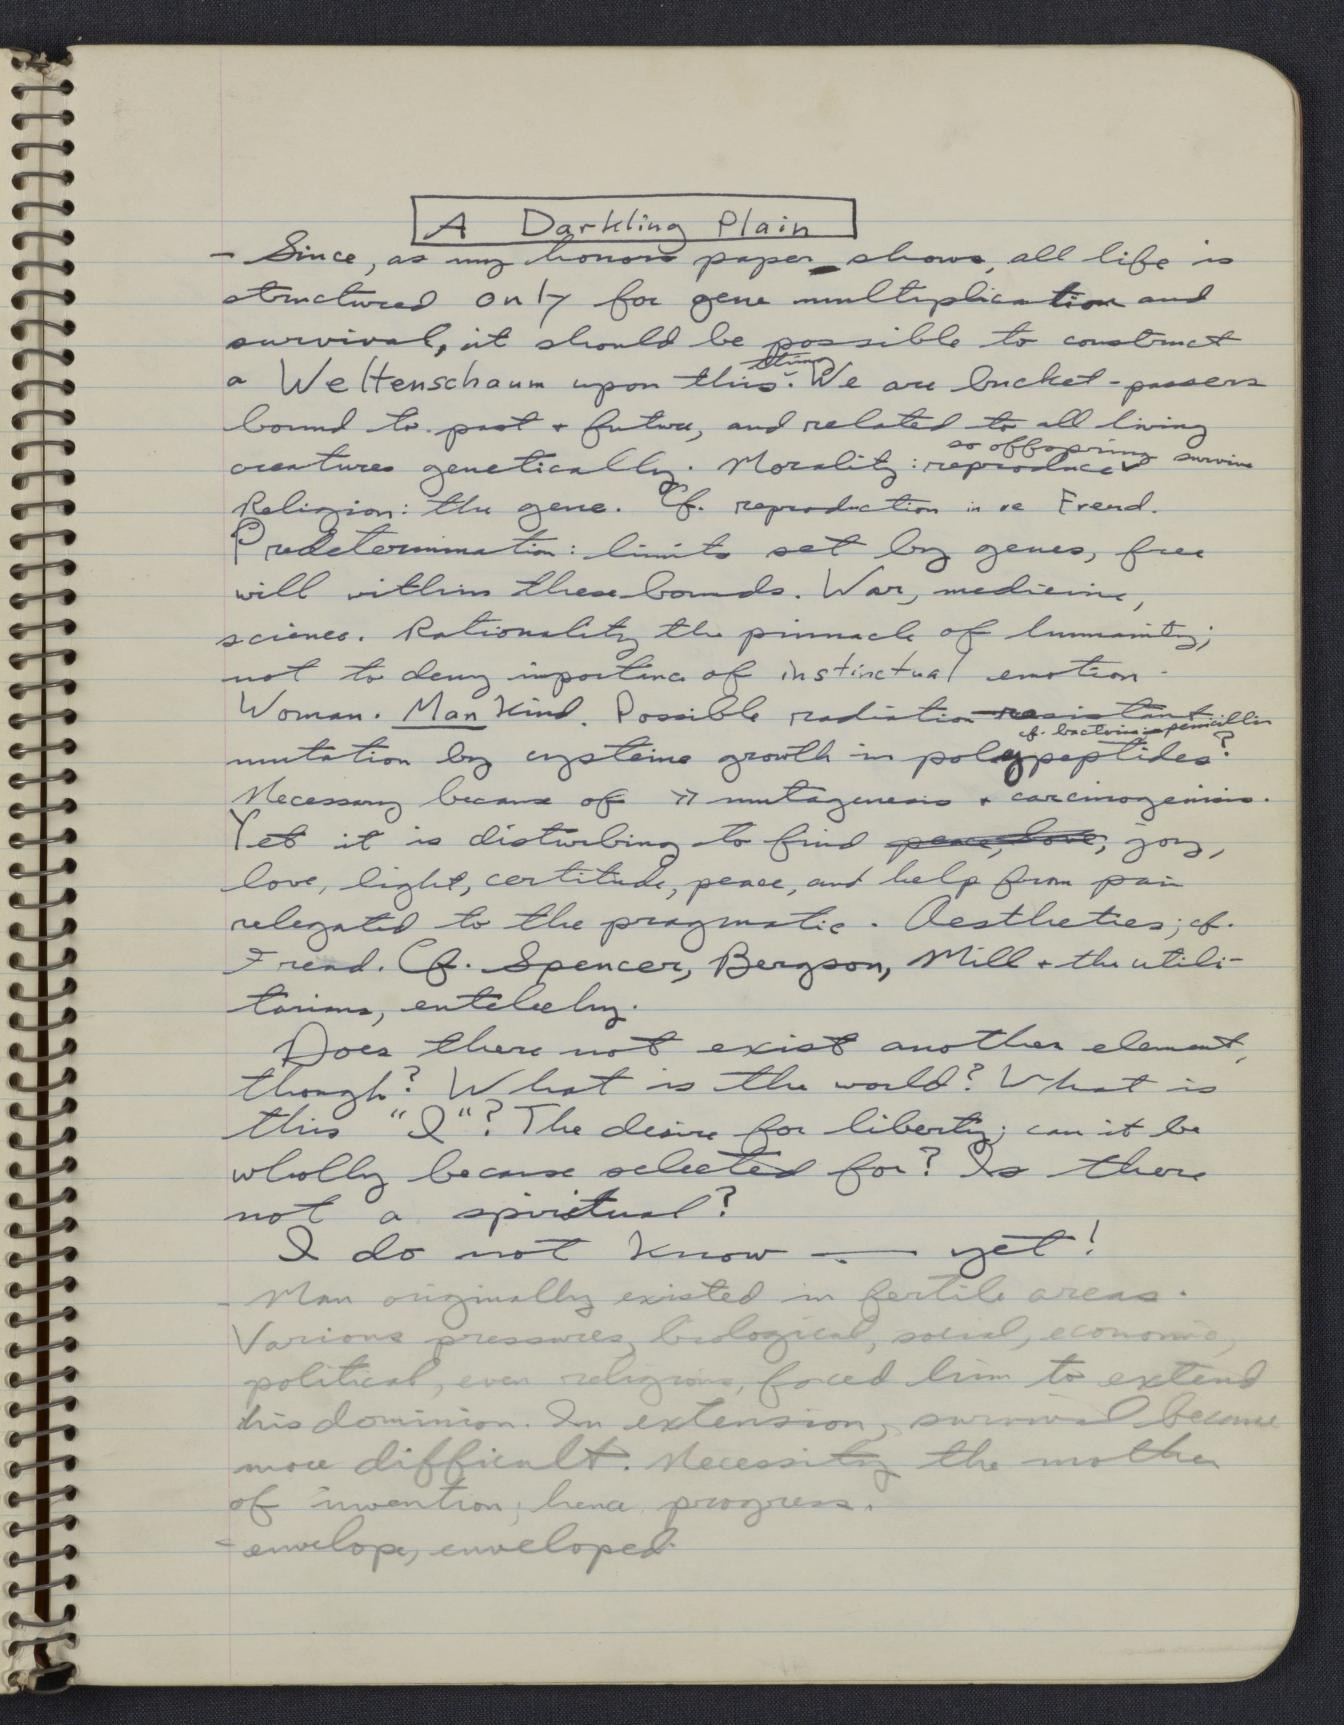 A Darkling Plain
- Since, as my honors paper shows, all life is
structured only for gene multiplication and
survival, it should be possible to construct
a Weltenschaum upon this. We are bucket-passers
bound to past + future, and related to all living
so offspring survive
creatures genetically. Morality: reproduce
Religion: the gene. Cf. reproduction in re Freud.
Predetermination: limits set by genes, free
will within these bounds. War, medicine,
science. Rationality the pinnacle of humanity;
not to deny importance of instinctual emotion.
Woman. Man Kind. Possible radiation resistant
cf. bacteria penicillin
mutation by cysteine growth in polypeptides?
Necessary because of >> mutagenesis + carcinogenisis.
Yet it is disturbing to find peace, love, joy,
love, light, certitude, peace, and help from pain
relegated to the pragmatic. Aesthetics; cf.
Freud. Cf. Spencer, Bergson, Mill + the utili-
tarians, entelechy.
Does there not exist another element,
though? What is the world? What is
this "I"? The desire for liberty; can it be
wholly because selected for? Is there
not a spiritual?
I do not know — yet!
- Man originally existed in fertile areas.
Various pressures, biological, social, economic,
political, even religious, forced him to extend
his dominion. In extension, survival became
more difficult. Necessity the mother
of invention; hence progress.
- envelope, enveloped.